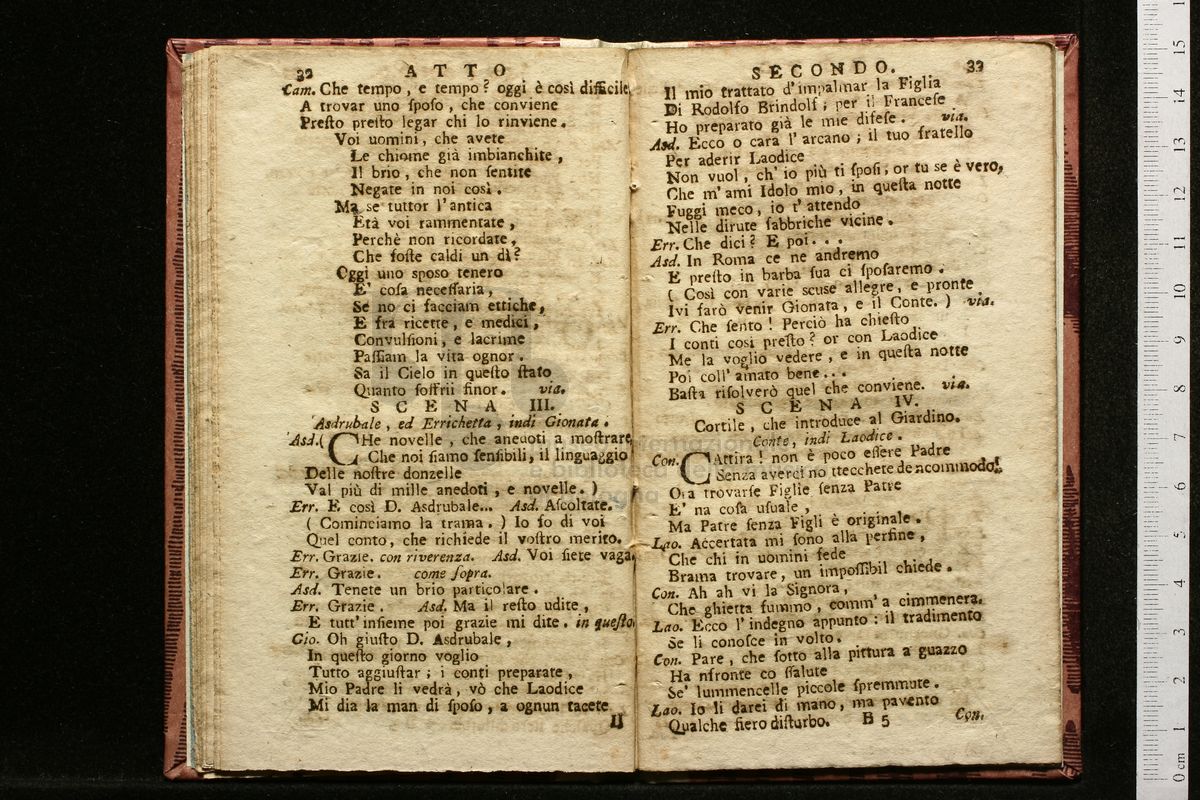 32 ATTO
Cam. Che tempo, e tempo? oggi è così difficile
A trovar uno ſpoſo, che conviene
Preſto preſto legar chi lo rinviene.
Voi uomini, che avete
Le chiome già imbianchite,
Il brio, che non ſentite
Negate in noi così.
Ma se tuttor l'antica
Età voi rammentate,
Perchè non ricordate,
Che foſte caldi un dì?
Oggi uno sposo tenero
E' coſa neceſſaria,
Se no ci facciam ettiche,
E fra ricette, e medici,
Convulſioni, e lacrime
Paſſiam la vita ognor.
Sa il Cielo in queſto ſtato
Quanto ſoffrii finor. via.
SCENA III.
Asdrubale, ed Errichetta, indi Gionata.
Asd. ( CHe novelle, che anedoti a moſtrare
Che noi ſiamo ſenſibili, il linguaggio
Delle noſtre donzelle
Val più di mille anedoti, e novelle. )
Err. E così D. Asdrubale... Asd. Aſcoltate.
( Cominciamo la trama. ) Io ſo di voi
Quel conto, che richiede il voſtro merito.
Err. Grazie. con riverenza. Asd. Voi ſiete vaga.
Err. Grazie. come ſopra.
Asd. Tenete un brio particolare.
Err. Grazie. Asd. Ma il reſto udite,
E tutt'inſieme poi grazie mi dite. in queſto.
Gio. Oh giuſto D. Asdrubale,
In queſto giorno voglio
Tutto aggiuſtar; i conti preparate,
Mio Padre li vedrà, vò che Laodice
Mi dia la man di ſpoſo, a ognun tacete
Il
SECONDO. 33
Il mio trattato d'impalmar la Figlia
Di Rodolfo Brindolſ; per il Franceſe
Ho preparato già le mie difeſe. via.
Asd. Ecco o cara l'arcano; il tuo fratello
Per aderir Laodice
Non vuol, ch'io più ti ſpoſi, or tu se è vero,
Che m'ami Idolo mio, in queſta notte
Fuggi meco, io t'attendo
Nelle dirute fabbriche vicine.
Err. Che dici? E poi...
Asd. In Roma ce ne andremo
E preſto in barba ſua ci ſpoſaremo.
( Così con varie scuse allegre, e pronte
Ivi farò venir Gionata, e il Conte. ) via.
Err. Che ſento! Perciò ha chieſto
I conti così preſto? or con Laodice
Me la voglio vedere, e in queſta notte
Poi coll'amato bene...
Baſta riſolverò quel che conviene. via.
SCENA IV.
Cortile, che introduce al Giardino.
Conte, indi Laodice.
Con. CAttira! non è poco eſſere Padre
Senza averci no ttecchete de ncommodo!
Ora trovarſe Figlie ſenza Patre
E' na coſa uſuale,
Ma Patre ſenza Figli è originale.
Lao. Accertata mi ſono alla perfine,
Che chi in uomini fede
Brama trovare, un impoſſibil chiede.
Con. Ah ah vi la Signora,
Che ghietta fummo, comm'a cimmenera.
Lao. Ecco l'indegno appunto: il tradimento
Se li conoſce in volto.
Con. Pare, che ſotto alla pittura a guazzo
Ha nfronte co ſſalute
Se' lummencelle piccole ſpremmute.
Lao. Io li darei di mano, ma pavento
Qualche fiero diſturbo. B 5 Con.